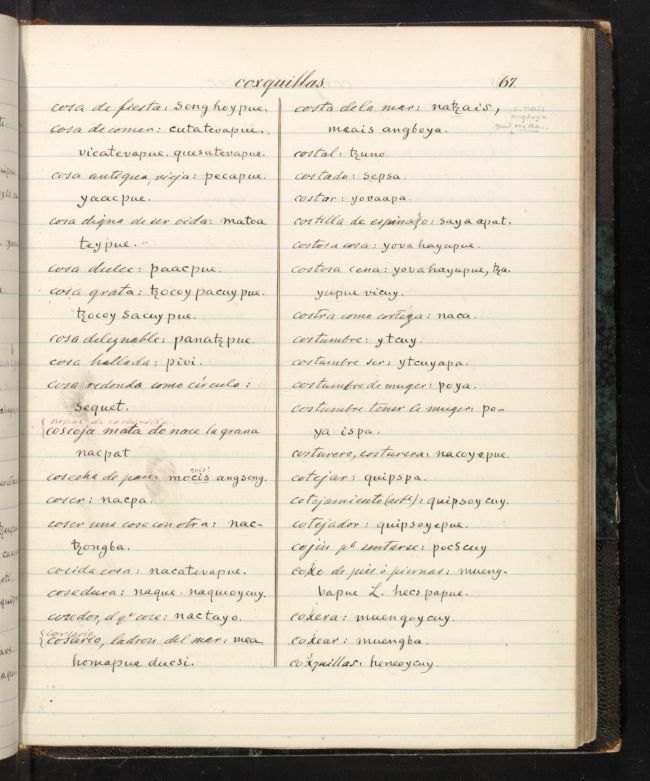 coxquillas
67.
cosa de fiesta: senghoy pue.
cosa de comer: cutatevapue.
vicatevapue. quesatevapue.
cosa antigua, vieja: pecapue.
yaacpue.
cosa digna de ser oida: matoa
teypue.
cosa dulce: paacpue.
cosa grata: tzocoy pacuy pue.
tzocoy sacuy pue.
cosa deleznable: panatzpue.
cosa hallada: pivi.
cosa redonda como circulo:
sequet.
nopal de cochinilla.
coscoja mata do nace la grana
nacpat
cosecha de pan: mocis angseng.
coser: nacpa.
coser una cosa con otra: nac-
tzongba.
cosida cosa: nacatevapue.
cosedura: naque. naqueoycuy.
cosedor, el qe cose: nactayo.
corsario
cosario, ladron del mar: mea
homapue ducsi.
costa de la mar: natzais,
meais angboya.
angboya
costal: tzuno.
costado: sepsa.
costar: yovaapa.
costilla de espinazo: saya apat.
costosa cosa: yova hayupue.
costosa cena: yova hayupue, tza.
yupue vicuy.
costra como corteza: naca.
costumbre: ytcuy.
costumbre ser: ytcuyapa.
costumbre de muger: poya.
costumbre tener la muger: po-
ya ispa.
costurero, costurera: nacoyepue.
cotejar: quipspa.
cotejamiento: quipsoycuy.
cotejador: quipsoyepue.
cojin pa sentarse: pocscuy
coxo de pies ó piernas: mueng-
bapue L. hecspapue.
coxera: muengoycuy.
coxear: muengba.
coxquillas: heneoycuy.